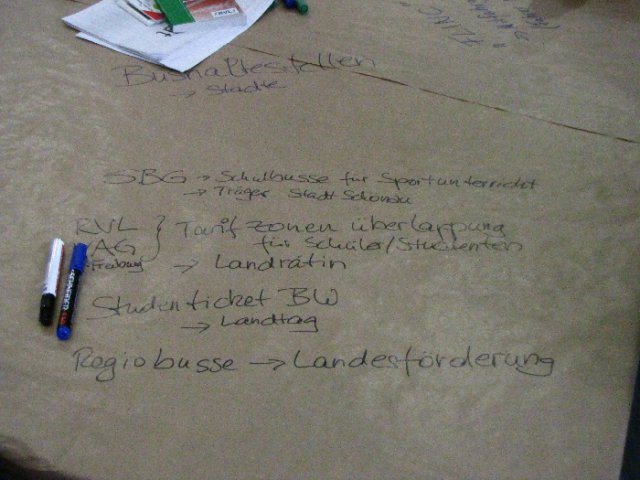 Bushaltestellen
→ Städte
SBG → Schulbusse für Sportunterricht
→ Träger Stadt Schönau
RVL } Tarifzonen überlappung
AG für Schüler/Studenten
Freiburg → Landrätin
Studenticket BW
→ Landtag
Regiobusse → Landesförderung